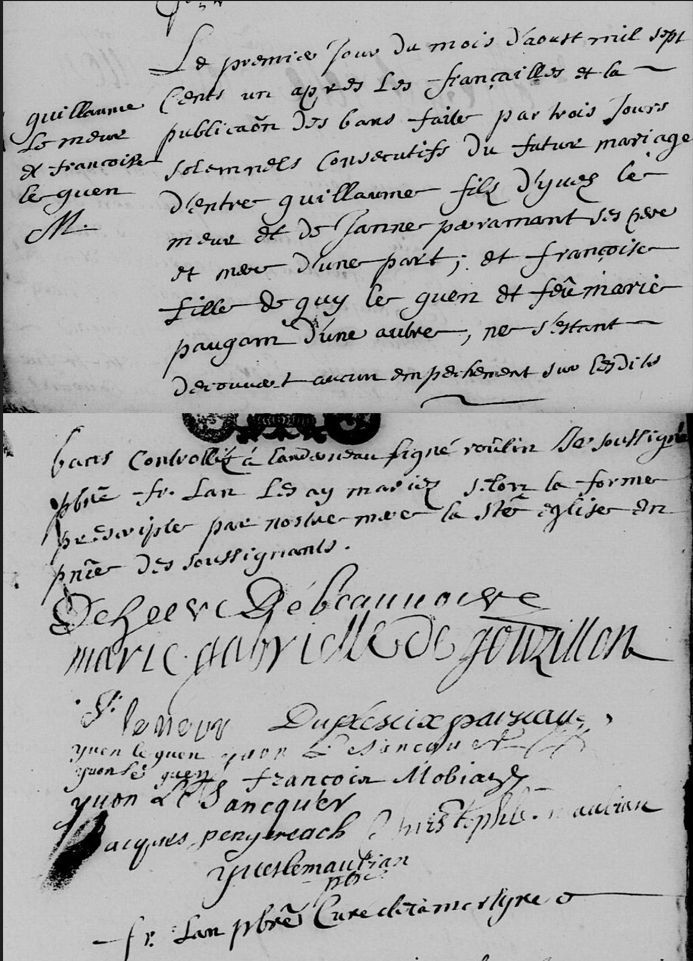 guillaume
Le meur
et francoise
le guen
M.
Le premier Jour du mois d'aoust mil sept
Cents un apres Les françailles et la
publicaõn des bans faite par trois Jours
solemnels Consecutifs du futur mariage
d'entre guillaume fils d'yuez le
meur et de Janne paramant ses pere
et mere d'une part; et françoise
fille de guy le guen et feûe marie
paugam d'une autre, ne s'estant
decouvert aucun empechement sur lesdits
bans Controllez á landerneau signé roûlin Je soussigné
pbrẽ fr. Lan Les ay mariez selon la forme
prescripte par nostre mere la Stẽ eglise en
pnĩe des soussignants.
De beaunoire
marie gabrielle de gouzillon
le meur Duplessix parscau
yuen le guen yuon Le Sancquer
yuon Le guen francois Mobian
yuon Le Sancquer
Jacques penguereach Christophle maubian
Yues le maubian
pbr
fr. Lan pbrẽ Curé de la martyre